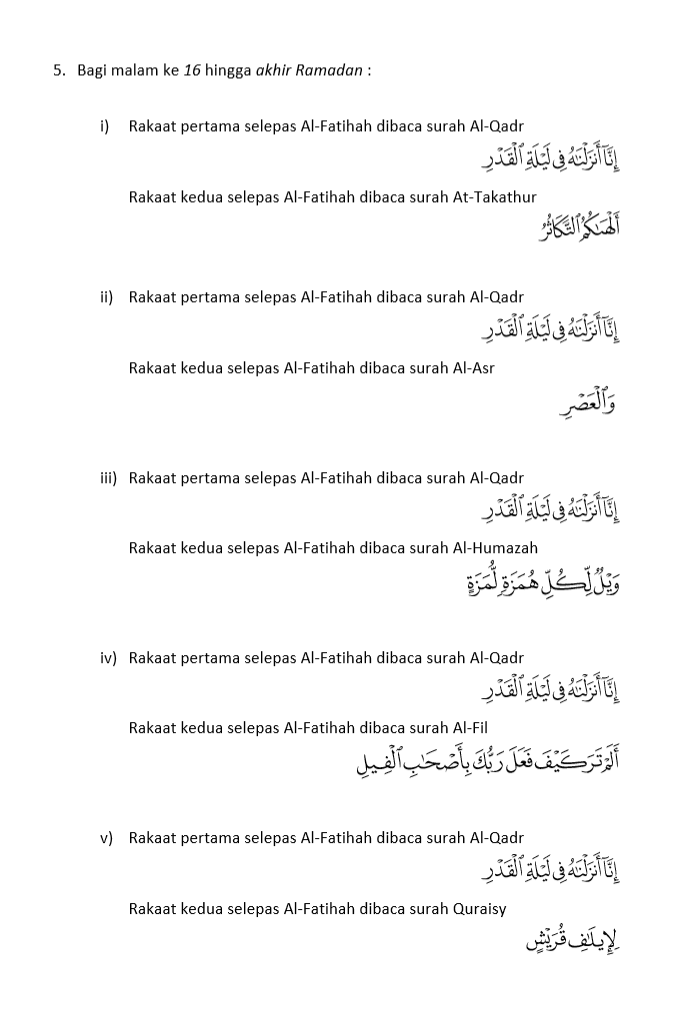 5. Bagi malam ke 16 hingga akhir Ramadan :
i) Rakaat pertama selepas Al-Fatihah dibaca surah Al-Qadr
إِنَّآ أَنزَلْنَٰهُ فِى لَيْلَةِ ٱلْقَدْرِ
Rakaat kedua selepas Al-Fatihah dibaca surah At-Takathur
أَلْهَىٰكُمُ ٱلتَّكَاثُرُ
ii) Rakaat pertama selepas Al-Fatihah dibaca surah Al-Qadr
إِنَّآ أَنزَلْنَٰهُ فِى لَيْلَةِ ٱلْقَدْرِ
Rakaat kedua selepas Al-Fatihah dibaca surah Al-Asr
وَٱلْعَصْرِ
iii) Rakaat pertama selepas Al-Fatihah dibaca surah Al-Qadr
إِنَّآ أَنزَلْنَٰهُ فِى لَيْلَةِ ٱلْقَدْرِ
Rakaat kedua selepas Al-Fatihah dibaca surah Al-Humazah
وَيْلٌ لِّكُلِّ هُمَزَةٍ لُّمَزَةٍ
iv) Rakaat pertama selepas Al-Fatihah dibaca surah Al-Qadr
إِنَّآ أَنزَلْنَٰهُ فِى لَيْلَةِ ٱلْقَدْرِ
Rakaat kedua selepas Al-Fatihah dibaca surah Al-Fil
أَلَمْ تَرَ كَيْفَ فَعَلَ رَبُّكَ بِأَصْحَٰبِ ٱلْفِيلِ
v) Rakaat pertama selepas Al-Fatihah dibaca surah Al-Qadr
إِنَّآ أَنزَلْنَٰهُ فِى لَيْلَةِ ٱلْقَدْرِ
Rakaat kedua selepas Al-Fatihah dibaca surah Quraisy
لِإِيلَٰفِ قُرَيْشٍ